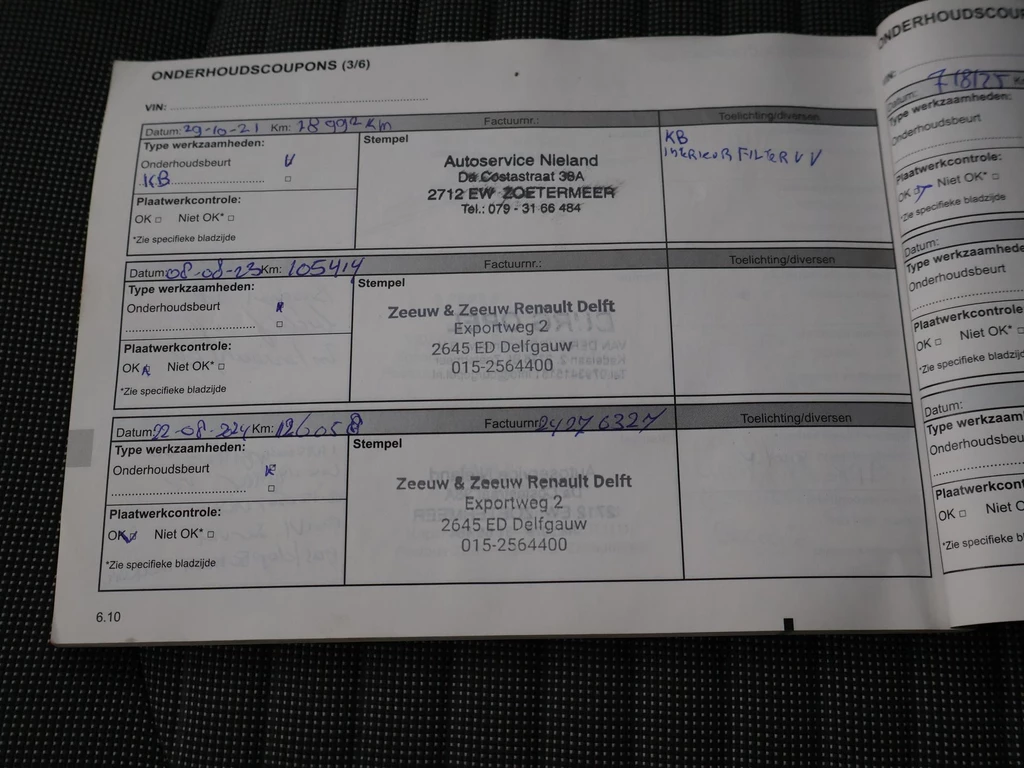 ONDERHOUDSCOUPONS (3/6)
VIN:
Datum: 29-10-21 Km: 78 992 Km Factuurnr.: Toelichting/diversen
Type werkzaamheden: Stempel
Onderhoudsbeurt V
KB
Plaatwerkcontrole:
OK □ Niet OK* □
*Zie specifieke bladzijde
Autoservice Nieland
Da Costastraat 38A
2712 EW ZOETERMEER
Tel.: 079 - 31 66 484
KB
INTERIEUR FILTER V V
Datum: 08-08-23 Km: 105414 Factuurnr.: Toelichting/diversen
Type werkzaamheden: Stempel
Onderhoudsbeurt
Plaatwerkcontrole:
OK Niet OK* □
*Zie specifieke bladzijde
Zeeuw & Zeeuw Renault Delft
Exportweg 2
2645 ED Delfgauw
015-2564400
Datum: 22-08-224 Km: 126058 Factuurnr. 24276327 Toelichting/diversen
Type werkzaamheden: Stempel
Onderhoudsbeurt
Plaatwerkcontrole:
OK Niet OK* □
*Zie specifieke bladzijde
Zeeuw & Zeeuw Renault Delft
Exportweg 2
2645 ED Delfgauw
015-2564400
6.10
ONDERHOUDSCOU
Datum: 7/8/25
Type werkzaamheden:
Onderhoudsbeurt
Plaatwerkcontrole:
OK Niet OK* □
*Zie specifieke bladzijde
Datum:
Type werkzaamhede
Onderhoudsbeurt
Plaatwerkcontrole
OK □ Niet OK* □
*Zie specifieke bladzijd
Datum:
Type werkzaam
Onderhoudsbeu
Plaatwerkcont
OK □ Niet O
*Zie specifieke bl